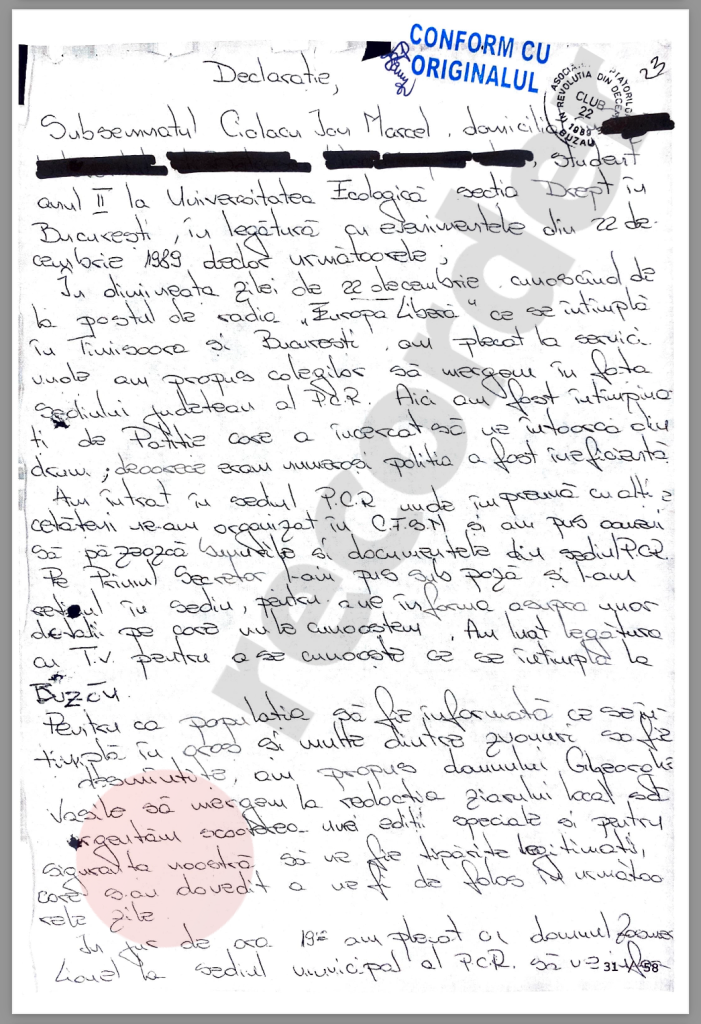 CONFORM CU
ORIGINALUL
23
ASOCIA
TATORILOR
REVOLUTIA DIN DECEM
CLUB
22
1989
BUZAU
Declarație,
Subsemnatul Ciolacu Ion Marcel, domicilia
, student
anul II la Universitatea Ecologică sectia Drept în
București, în legătură cu evenimentele din 22 de-
cembrie 1989 declar următoarele;
În dimineata zilei de 22 decembrie, cunoscînd de
la postul de radio „Europa Liberă" ce se întîmplă
în Timisoara și București, am plecat la servici
unde am propus colegilor să mergem în fata
sediului județean al P.C.R. Aici am fost întîmpina-
ti de Politie care a încercat să ne întoarcă din
drum; deoarece eram numerosi politia a fost ineficientă
Am intrat în sediul P.C.R unde împreună cu alți
cetăteni ne-am organizat în C.F.S.N și am pus oameni
să păzească bunurile si documentele din sediul P.C.R.
Pe Primul Secretar l-am pus sub pază și l-am
reținut în sediu, pentru a ne informa asupra unor
detalii pe care nu le cunosteam. Am luat legătura
cu T.V. pentru a se cunoaste ce se întîmplă la
Buzău.
Pentru ca populatia să fie informată ce se în-
tîmplă în oraș si multe dintre zvonuri să fie
desmintite, am propus domnului Gheorghe
Vasile să mergem la redactia ziarului local să
urgentăm scoaterea unei editii speciale și pentru
siguranta noastră să ne fie tipărite legitimatii,
care s-au dovedit a ne fi de folos în următoa
rele zile.
În jur de ora 19 am plecat cu domnul
Lionel la sediul municipal al P.C.R. să
31 58
recorder